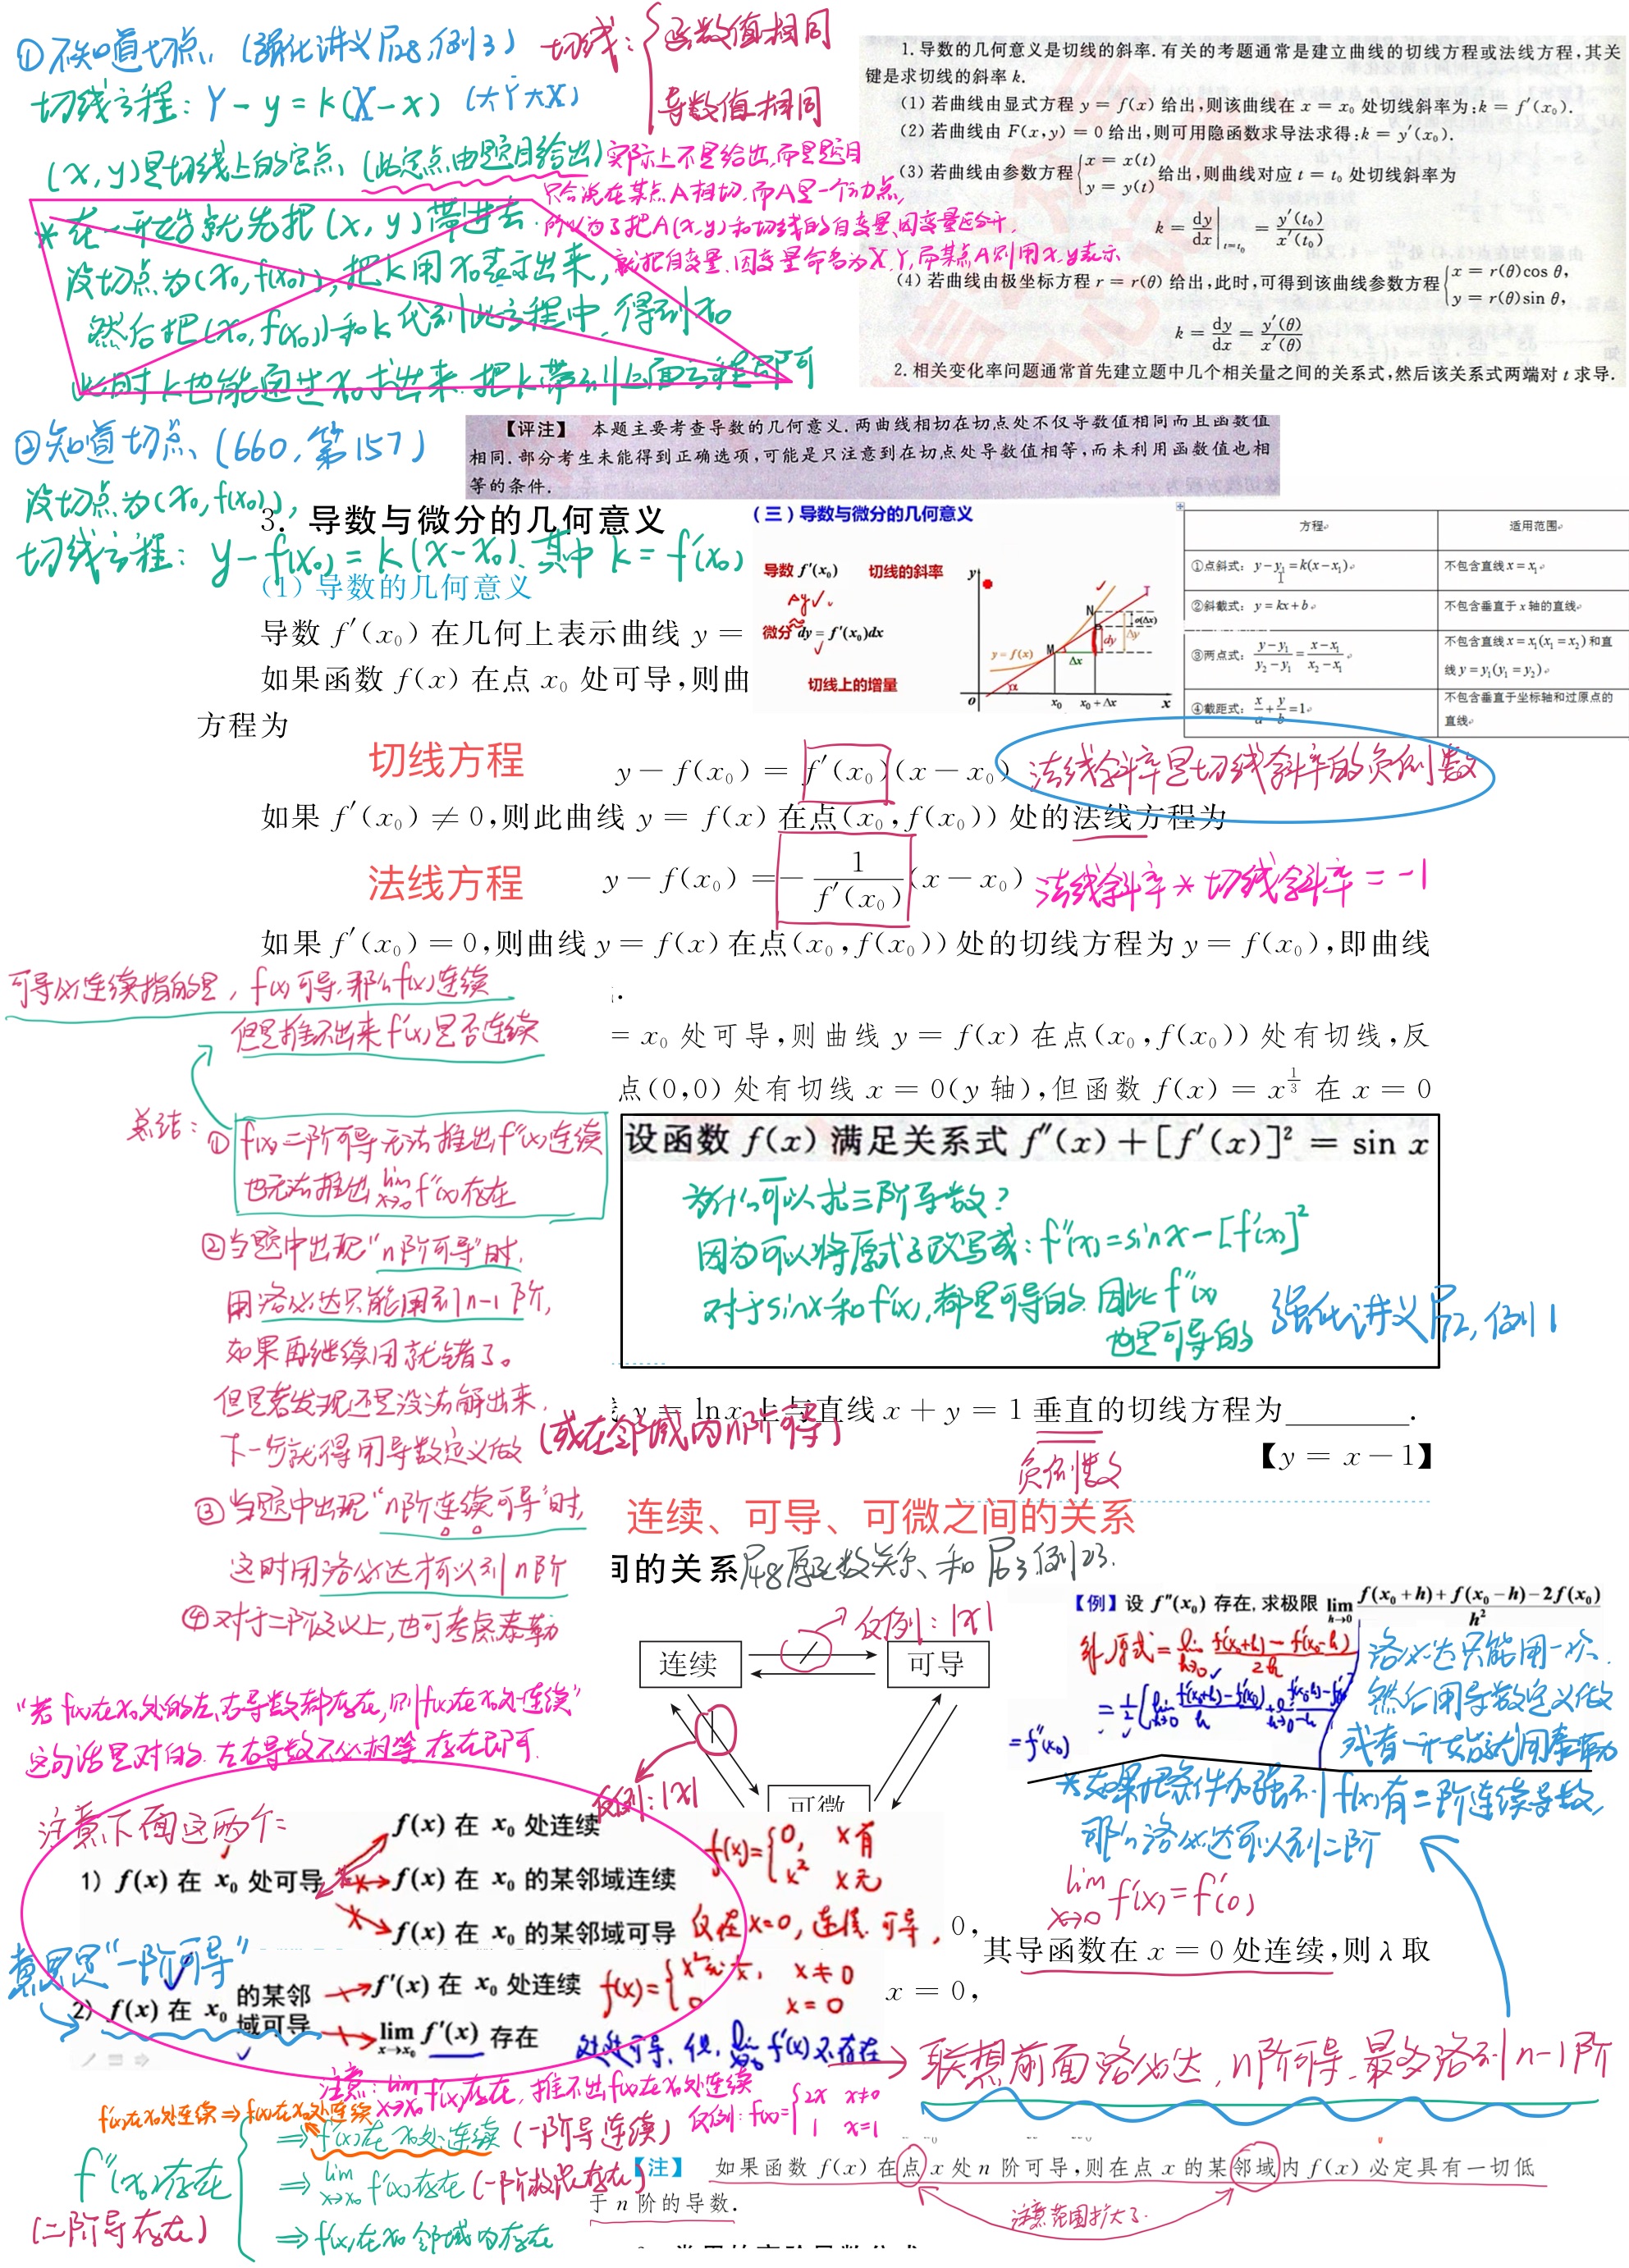 ①不知道切点,(强化讲义P28,例3)
切线:{函数值相同
导数值相同
切线方程:Y-y=k(X-x) (大Y大X)
(x,y)是切线上的定点,(此定点由题目给出)
实际上不是给出,而是题目
只会说在某点A相切,而A是一个动点,
所以为了把A(x,y)和切线的自变量、因变量区分开,
就把自变量、因变量命名为X,Y,而某点A则用x,y表示
*在一开始就先把(x,y)带进去.
设切点为(x₀,f(x₀)),把k用x₀表示出来,
然后把(x₀,f(x₀))和k代到此方程中,得到x₀
此时k也能通过x₀求出来,把k带到上面方程即可
1.导数的几何意义是切线的斜率.有关的考题通常是建立曲线的切线方程或法线方程,其关
键是求切线的斜率 k.
(1) 若曲线由显式方程 y = f(x) 给出,则该曲线在 x = x₀ 处切线斜率为:k = f′(x₀).
(2) 若曲线由 F(x,y) = 0 给出,则可用隐函数求导法求得:k = y′(x₀).
(3) 若曲线由参数方程{x = x(t) y = y(t)给出,则曲线对应 t = t₀ 处切线斜率为
k = dy/dx|t=t₀ = y′(t₀)/x′(t₀)
(4) 若曲线由极坐标方程 r = r(θ) 给出,此时,可得到该曲线参数方程{x = r(θ)cos θ, y = r(θ)sin θ,
k = dy/dx = y′(θ)/x′(θ)
2.相关变化率问题通常首先建立题中几个相关量之间的关系式,然后该关系式两端对 t 求导.
②知道切点、(660,第157)
设切点为(x₀,f(x₀)),
切线方程:y-f(x₀)=k(x-x₀).其中 k=f′(x₀)
【评注】 本题主要考查导数的几何意义.两曲线相切在切点处不仅导数值相同而且函数值
相同.部分考生未能得到正确选项,可能是只注意到在切点处导数值相等,而未利用函数值也相
等的条件.
3. 导数与微分的几何意义
(1) 导数的几何意义
导数 f′(x₀) 在几何上表示曲线 y =
如果函数 f(x) 在点 x₀ 处可导,则曲
方程为
(三)导数与微分的几何意义
导数 f′(x₀) 切线的斜率
Δy
微分 dy = f′(x₀)dx
切线上的增量
y
y = f(x)
M
N
T
o(Δx)
dy
Δy
Δx
α
o
x₀
x₀ + Δx
x
方程 适用范围
①点斜式: y−y₁=k(x−x₁) 不包含直线 x=x₁
②斜截式: y=kx+b 不包含垂直于 x 轴的直线
③两点式: (y−y₁)/(y₂−y₁)=(x−x₁)/(x₂−x₁) 不包含直线 x=x₁(x₁=x₂) 和直
线 y=y₁(y₁=y₂)
④截距式: x/a+y/b=1 不包含垂直于坐标轴和过原点的
直线
切线方程
y − f(x₀) = f′(x₀)(x − x₀)
法线斜率是切线斜率的负倒数
如果 f′(x₀) ≠ 0,则此曲线 y = f(x) 在点(x₀,f(x₀)) 处的法线方程为
法线方程
y − f(x₀) = −1/f′(x₀)(x − x₀)
法线斜率*切线斜率=-1
如果 f′(x₀) = 0,则曲线 y = f(x) 在点(x₀,f(x₀)) 处的切线方程为 y = f(x₀),即曲线
可导必连续指的是,f(x)可导,那么f(x)连续
但是推不出来f′(x)是否连续
= x₀ 处可导,则曲线 y = f(x) 在点(x₀,f(x₀)) 处有切线,反
点(0,0) 处有切线 x = 0(y 轴),但函数 f(x) = x^(1/3) 在 x = 0
总结:①f(x)二阶可导无法推出f″(x)连续
也无法推出lim x→x₀ f″(x)存在
②当题中出现"n阶可导"时,
用洛必达只能用到n-1阶,
如果再继续用就错了。
但是若发现还是没法解出来,
下一步就得用导数定义做
(或在邻域内n阶可导)
③当题中出现"n阶连续可导"时,
这时用洛必达才可以到n阶
④对于二阶及以上,也可考虑泰勒
设函数 f(x) 满足关系式 f″(x) + [f′(x)]² = sin x
为什么可以求三阶导数?
因为可以将原式子改写成:f″(x)=sinx-[f′(x)]²
对于sinx和f′(x),都是可导的.因此f″(x)
也是可导的
强化讲义P72,例1
y = ln x 上与直线 x + y = 1 垂直的切线方程为________.
负倒数
【y = x − 1】
连续、可导、可微之间的关系
间的关系
P48原函数关系、和P63例23.
反例:|x|
连续
可导
可微
反例:|x|
【例】设 f″(x₀) 存在,求极限 lim h→0 (f(x₀+h)+f(x₀−h)−2f(x₀))/h²
原式=lim h→0 (f′(x₀+h)-f′(x₀-h))/2h
=1/2[lim h→0 (f′(x₀+h)-f′(x₀))/h + lim h→0 (f′(x₀-h)-f′(x₀))/-h]
=f″(x₀)
洛必达只能用一次.
然后用导数定义做
或者一开始就用泰勒
*如果把条件加强到f(x)有二阶连续导数,
那么洛必达可以到二阶
"若f(x)在x₀处的左、右导数都存在,则f(x)在x₀处连续"
这句话是对的.左右导数不必相等,存在即可.
注意下面这两个:
1) f(x) 在 x₀ 处可导
f(x) 在 x₀ 处连续
f(x) 在 x₀ 的某邻域连续
f(x) 在 x₀ 的某邻域可导
f(x)={0, x有
x² x无
仅在x=0,连续.可导,
意思是"一阶可导"
2) f(x) 在 x₀ 的某邻域可导
f′(x) 在 x₀ 处连续
lim x→x₀ f′(x) 存在
f(x)={x²sin1/x, x≠0
0 x=0
处处可导,但,lim x→0 f′(x)不存在
lim x→0 f′(x)=f′(0)
0,
x = 0,
其导函数在 x = 0 处连续,则 λ 取
联想前面洛必达,n阶可导,最多洛到n-1阶
注意:lim x→x₀ f(x)存在,推不出f(x)在x₀处连续
反例:f(x)={2x x≠0
1 x=1
f′(x)在x₀处连续⇒f(x)在x₀处连续
f″(x₀)存在
(二阶导存在)
⇒f′(x)在x₀处连续 (一阶导连续)
⇒lim x→x₀ f′(x)存在 (一阶极限存在)
⇒f′(x)在x₀邻域内存在
【注】 如果函数 f(x) 在点 x 处 n 阶可导,则在点 x 的某邻域内 f(x) 必定具有一切低
于 n 阶的导数.
注意范围扩大了.